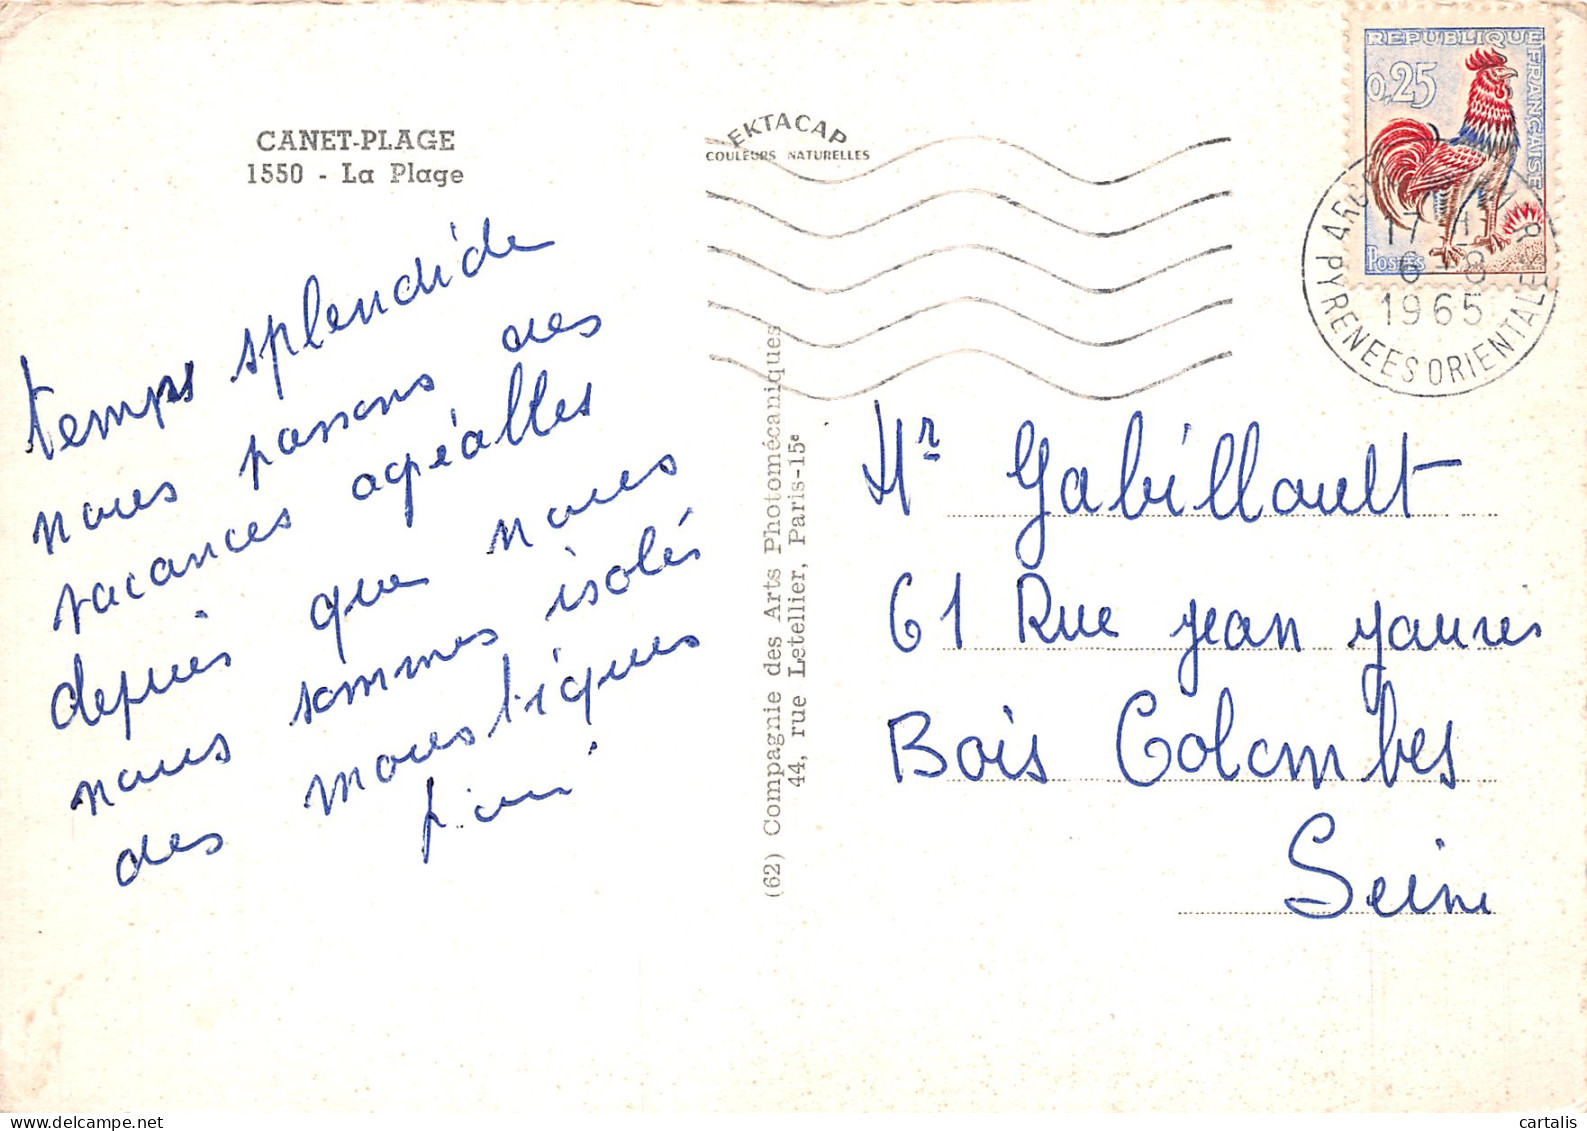 CANET-PLAGE
1550 - La Plage
temps splendide
nous passons des
vacances agéables
depuis que nous
nous sommes isolés
des moustiques
EKTACAP
COULEURS NATURELLES
(62) Compagnie des Arts Photomécaniques
44, rue Letellier, Paris-15e
REPUBLIQUE FRANÇAISE
0,25
POSTES
17 H
6 - 8
1965
PYRENEES ORIENTALES
Mr Gabillault
61 Rue Jean Jaures
Bois Colombes
Seine
cartalis